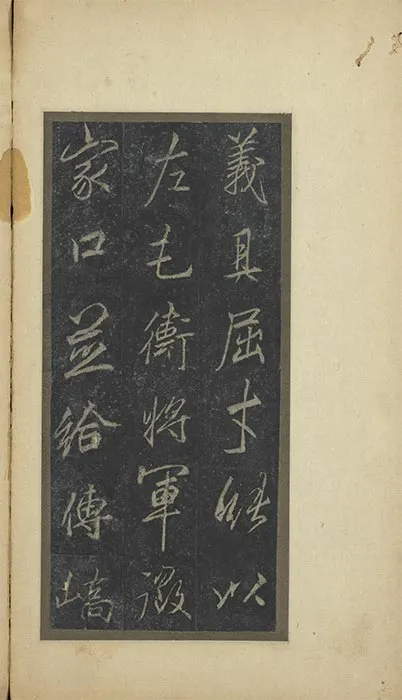 義具屈才能以
左屯衛將軍徵
家口並給傳嶠